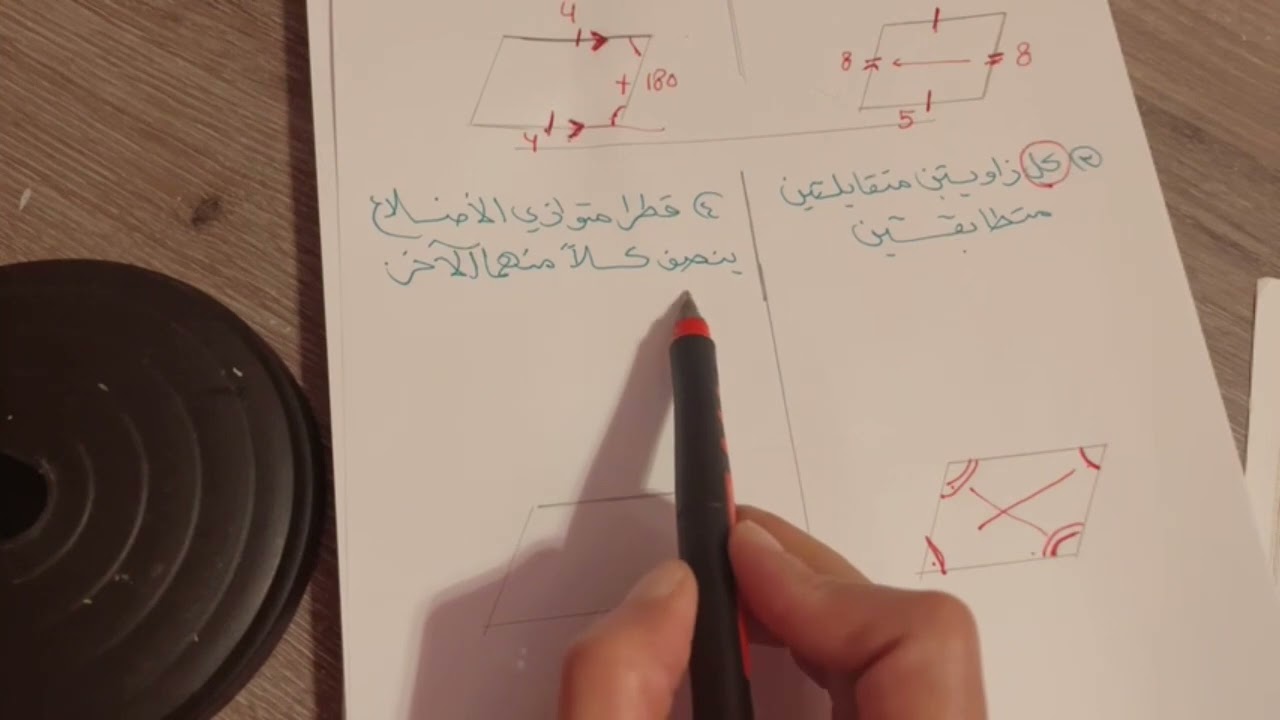 8 8
5
4
+ 180
4
٣) كل زاويتين متقابلتين
متطابقتين
٤) قطرا متوازي الأضلاع
ينصف كلاً منهما الآخر